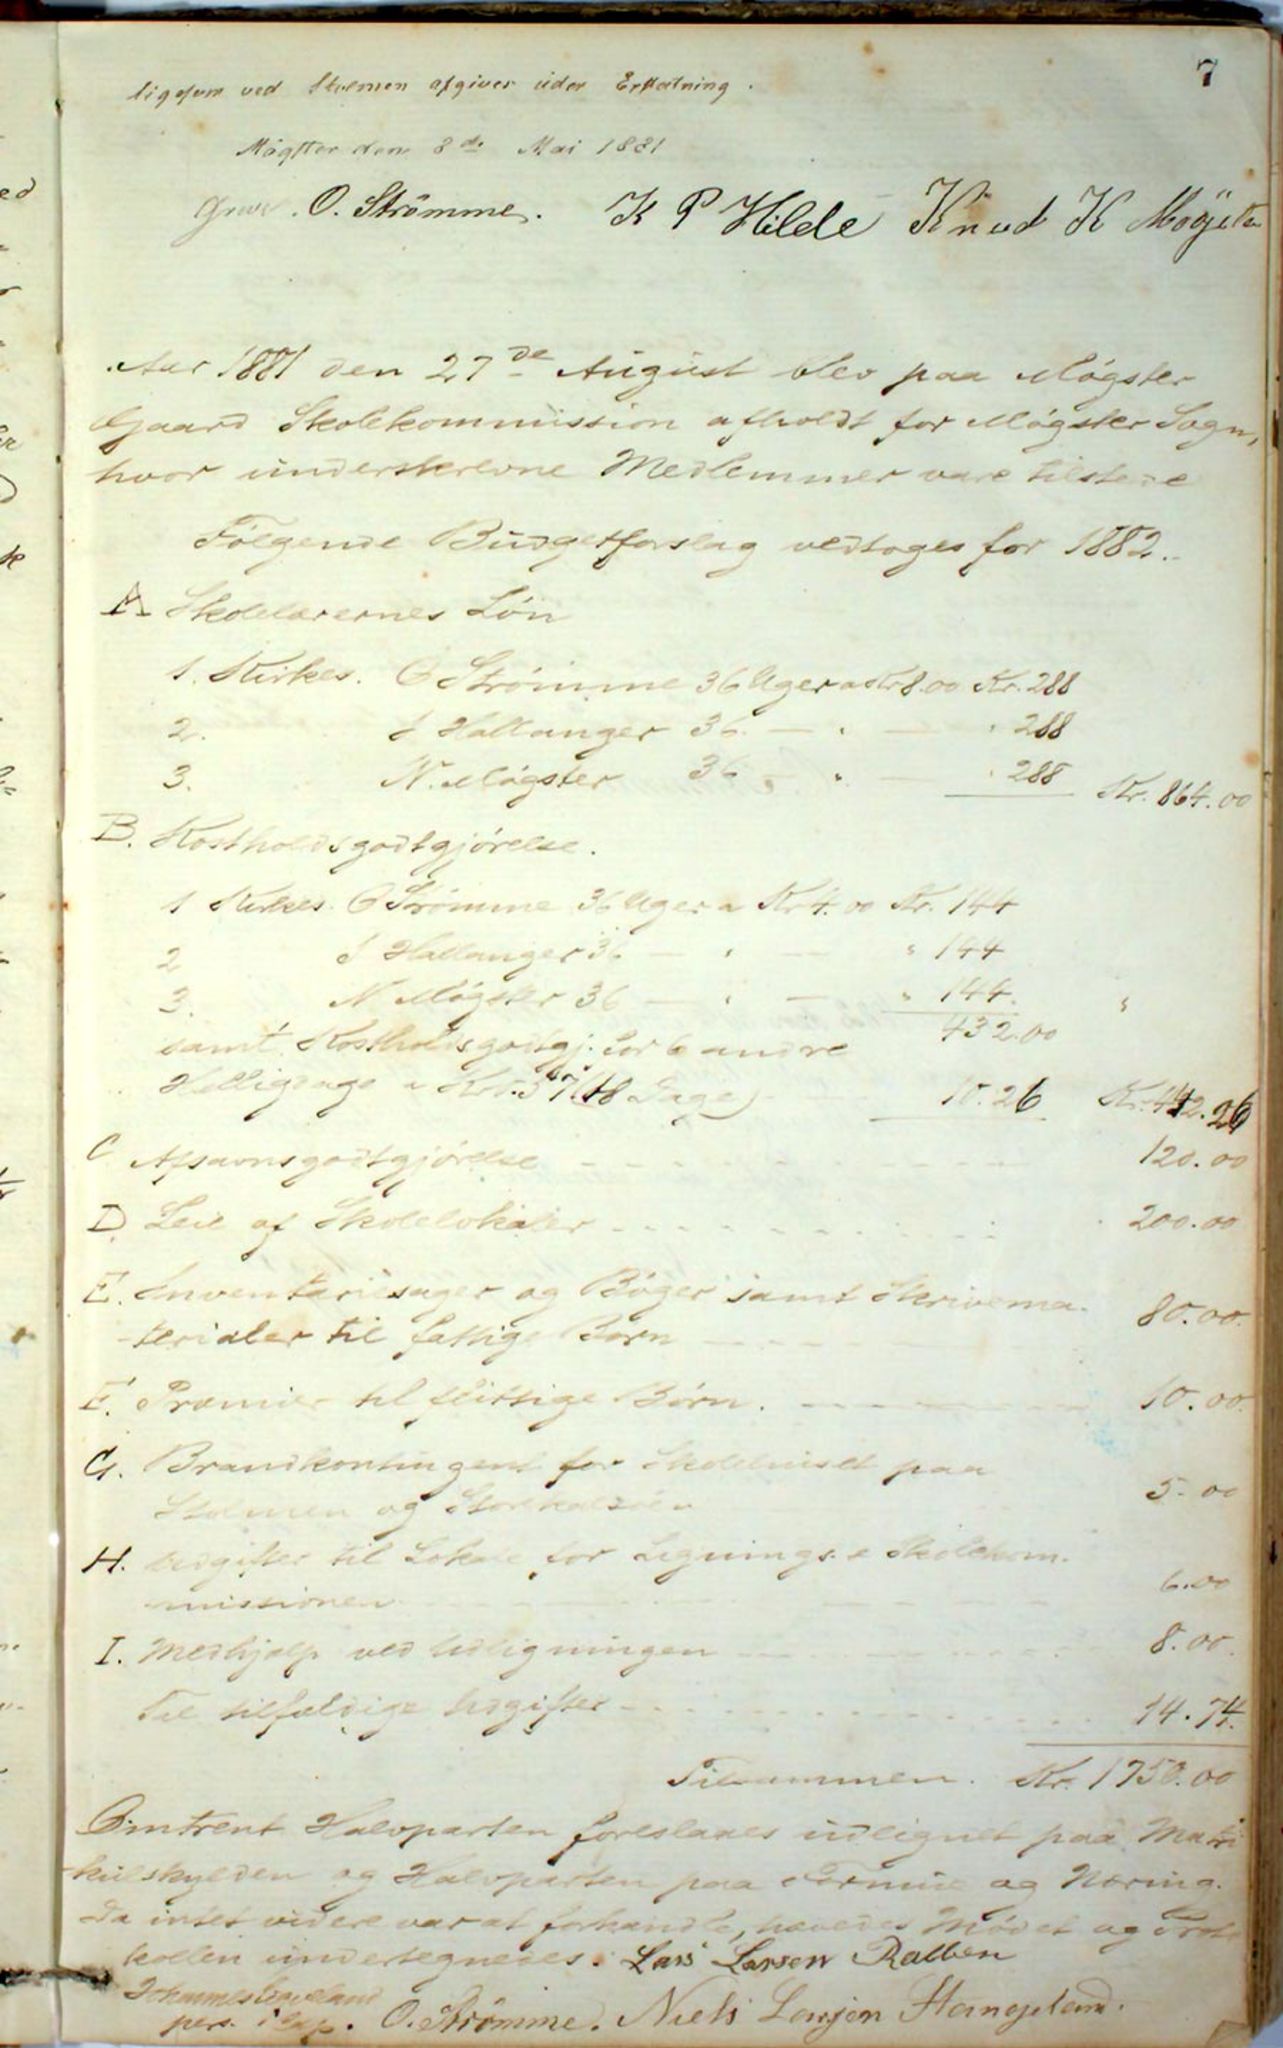 7
ligesom ved Stolmen afgives uden Erstatning.
Møgster den 8de Mai 1881
O. Strömme. K P Hilde Knud K Mögster
Aar 1881 den 27de August blev paa Møgster
Gaard Skolekommission afholdt for Møgster Sogn,
hvor underskrevne Medlemmer vare tilstede
Følgende Budgetforslag vedtoges for 1882.
A Skolelærernes Løn
1. Kirkes. O Strømme 36 Uger a Kr 8.00 Kr. 288
2. J Hallanger 36 — " — " 288
3. N. Møgster 36 — " — " 288 Kr. 864.00
B. Kostholdsgodtgjørelse.
1 Kirkes. O Strømme 36 Uger a Kr 4.00 Kr. 144
2 J Hallanger 36 — " — " 144
3. N Møgster 36 — " — " 144 "
432.00
samt Kostholdsgodtgj. for 6 andre
Helligdage a Kr 0.57 (18 Dage) 10.26 Kr. 442.26
C Afsavnsgodtgjørelse 120.00
D. Leie af Skolelokaler 200.00
E. Inventariesager og Bøger samt Skrivema-
-terialer til fattige Børn 80.00
F. Præmier til flittige Børn. 10.00
G. Brandkontingent for Skolehuset paa
Stolmen og Storekalsøen 5.00
H. Udgifter til Lokale for Lignings- & Skolekom-
missionen 6.00
I. Medhjælp ved Udligningen 8.00
Til tilfældige Udgifter 14.74
Tilsammen. Kr. 1750.00
Omtrent Halvparten foreslaaes udlignet paa Matri-
kulskylden og Halvparten paa Formue og Næring.
Da intet videre var at forhandle, hævedes Mødet og Proto-
kollen undertegnedes. Lars Larsen Rabben
Johannes pers. Kap. O. Strömme. Niels Larsen Stangeland.